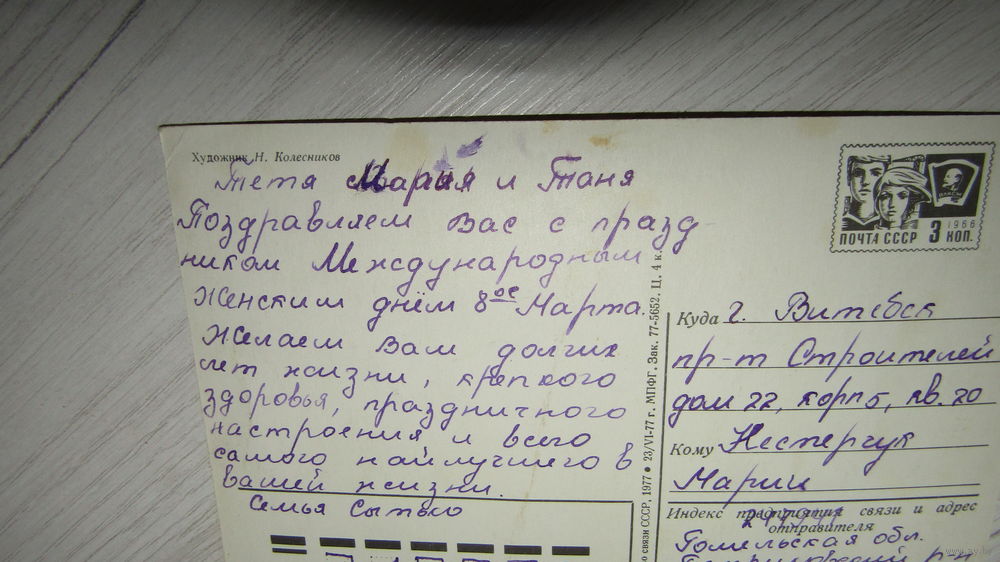 Художник Н. Колесников
Тетя Мария и Таня
Поздравляем Вас с празд-
ником Международным
Женским днём 8ое Марта.
Желаем Вам долгих
лет жизни, крепкого
здоровья, праздничного
настроения и всего
самого наилучшего в
вашей жизни.
Семья Сытько
связи СССР, 1977 ● 23/VI-77 г. МПФГ. Зак. 77-5652. Ц. 4 к.
ПОЧТА СССР 3 КОП.
1966
ВЛКСМ
Куда г. Витебск
пр-т Строителей
дом 22, корп 5, кв. 20
Кому Нестерчук
Марии
Индекс предприятия связи и адрес
отправителя
Гомельская обл.
р-н